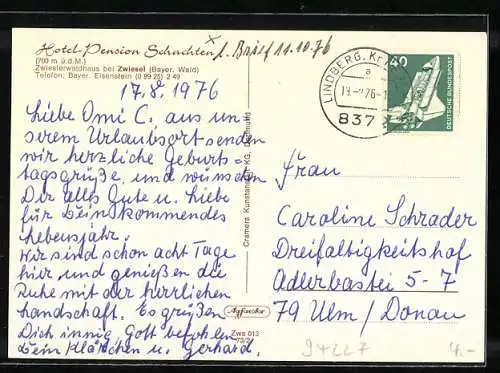 Hotel-Pension Schachten
(700 m ü.d.M.)
Zwieslerwaldhaus bei Zwiesel (Bayer. Wald)
Telefon: Bayer. Eisenstein (0 99 25) 2 49
x 1. Brief 11.10.76
17.8.1976
Liebe Omi C. aus un-
serem Urlaubsort senden
wir herzliche Geburts-
tagsgrüße, und wünschen
Dir alles Gute u. Liebe
für Dein kommendes
Lebensjahr.
Wir sind schon acht Tage
hier und genießen die
Ruhe mit der herrlichen
Landschaft. Es grüßen
Dich innig Gott befohlen
Dein Klärchen u. Gerhard.
Cramers Kunstanstalt KG, Dortmund
Zws 013
LINDBERG, Kr.
a
-76-1
837
40
DEUTSCHE BUNDESPOST
Frau
Caroline Schrader
Dreifaltigkeitshof
Adlerbastei 5-7
79 Ulm/Donau
94227
4.-